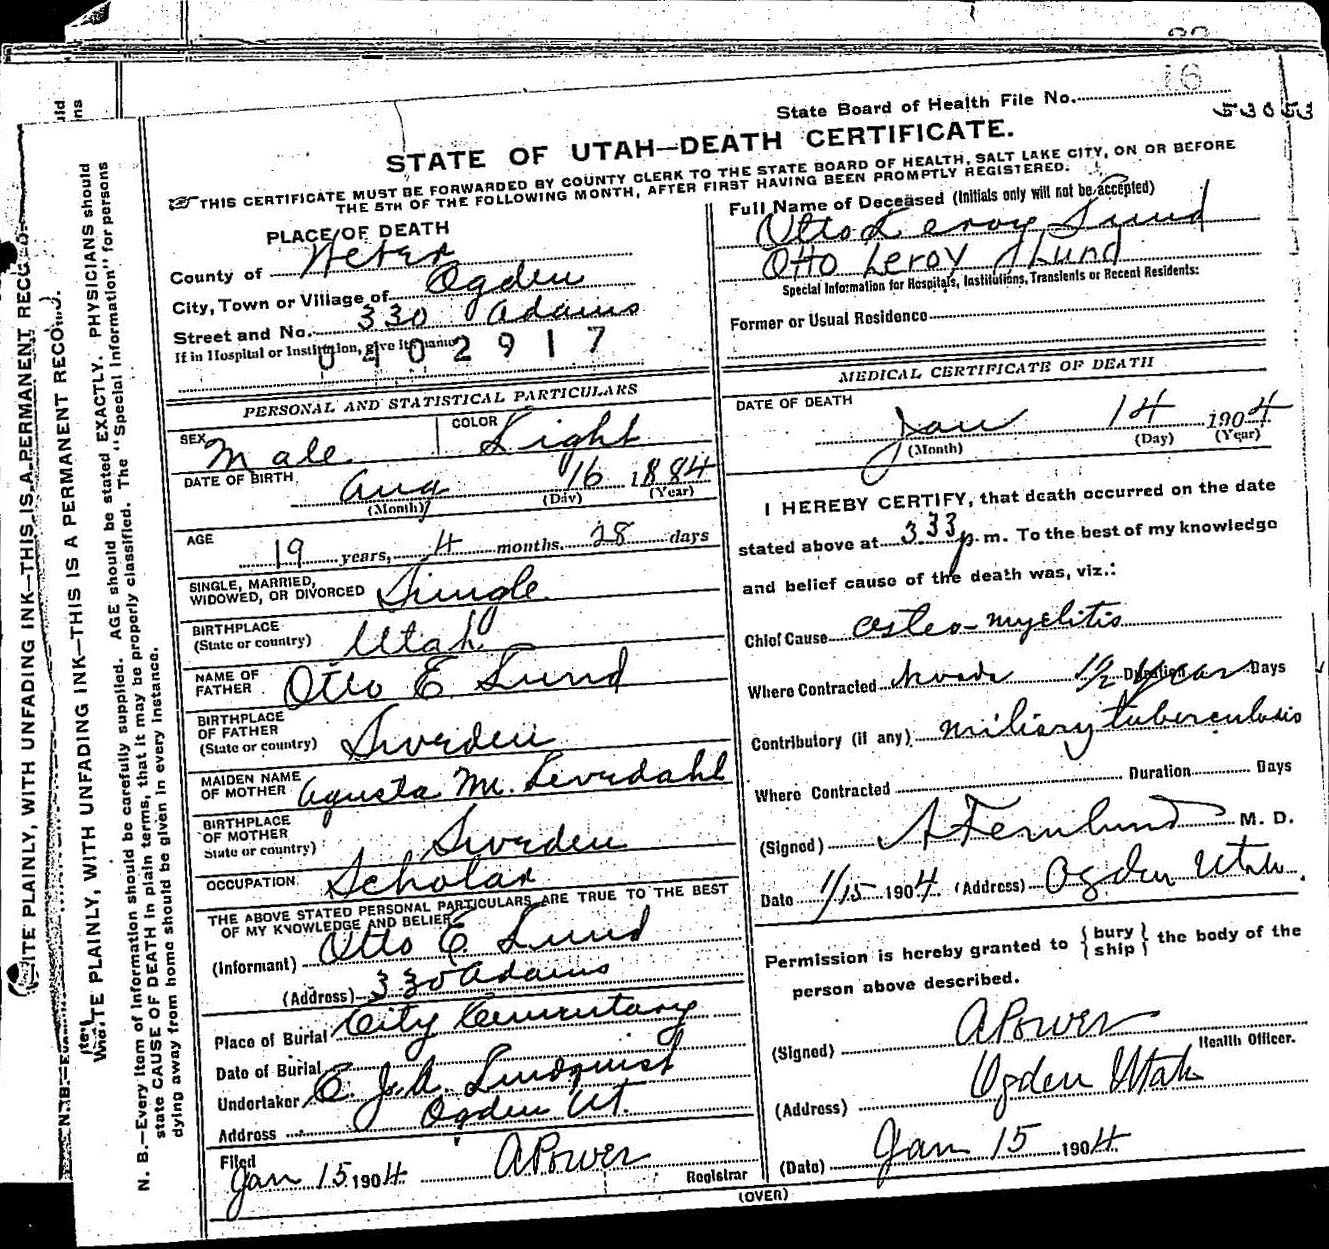 16
State Board of Health File No.
53053
STATE OF UTAH—DEATH CERTIFICATE.
THIS CERTIFICATE MUST BE FORWARDED BY COUNTY CLERK TO THE STATE BOARD OF HEALTH, SALT LAKE CITY, ON OR BEFORE
THE 5TH OF THE FOLLOWING MONTH, AFTER FIRST HAVING BEEN PROMPTLY REGISTERED.
PLACE OF DEATH
County of Weber
City, Town or Village of Ogden
Street and No. 330 Adams
If in Hospital or Institution, give its name
0402917
PERSONAL AND STATISTICAL PARTICULARS
SEX Male COLOR Light
DATE OF BIRTH Aug 16 1884
(Month) (Day) (Year)
AGE 19 years, 4 months 28 days
SINGLE, MARRIED,
WIDOWED, OR DIVORCED Single
BIRTHPLACE
(State or country) Utah
NAME OF
FATHER Otto E. Lund
BIRTHPLACE
OF FATHER
(State or country) Sweden
MAIDEN NAME
OF MOTHER Agusta M. Leverdahl
BIRTHPLACE
OF MOTHER
State or country) Sweden
OCCUPATION Scholar
THE ABOVE STATED PERSONAL PARTICULARS ARE TRUE TO THE BEST
OF MY KNOWLEDGE AND BELIEF
(Informant) Otto E Lund
(Address) 330 Adams
Place of Burial City Cemetary
Date of Burial
Undertaker E. J. A. Lindquist
Address Ogden Ut.
Filed
Jan 15 1904 A Power Registrar
Full Name of Deceased (Initials only will not be accepted)
Otto Leroy Lund
Otto Leroy Lund
Special Information for Hospitals, Institutions, Transients or Recent Residents:
Former or Usual Residence
MEDICAL CERTIFICATE OF DEATH
DATE OF DEATH
Jan 14 1904
(Month) (Day) (Year)
I HEREBY CERTIFY, that death occurred on the date
stated above at 333 p. m. To the best of my knowledge
and belief cause of the death was, viz.:
Chief Cause Osteo-myelitis
Where Contracted Nevada 1 1/2 Duration year Days
Contributory (if any) miliary tuberculosis
Where Contracted Duration Days
(Signed) A Fernlund M. D.
Date 1/15 1904 (Address) Ogden Utah.
Permission is hereby granted to { bury ship } the body of the
person above described.
(Signed) A Power
Health Officer.
(Address) Ogden Utah
(Date) Jan 15 1904
(OVER)
WRITE PLAINLY, WITH UNFADING INK—THIS IS A PERMANENT RECORD.
N. B.—Every item of information should be carefully supplied. AGE should be stated EXACTLY. PHYSICIANS should
state CAUSE OF DEATH in plain terms, that it may be properly classified. The "Special Information" for persons
dying away from home should be given in every instance.
ITE PLAINLY, WITH UNFADING INK—THIS IS A PERMANENT RECO
N. B.—Every